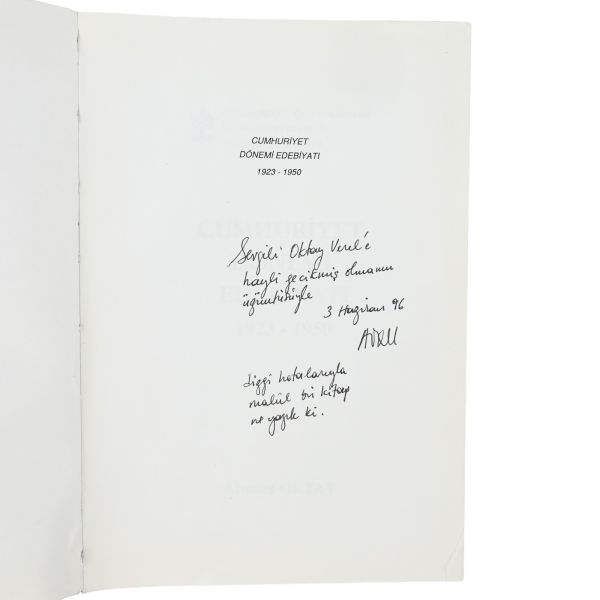 CUMHURİYET
DÖNEMİ EDEBİYATI
1923 - 1950
CUMHURİYET
1923 - 1950
Sevgili Oktay Verel'e
hayli gecikmiş olmanın
üzüntüsüyle
3 Haziran 96
dizgi hatalarıyla
malûl bir kitap
ne yazık ki.
Ahmet OKTAY